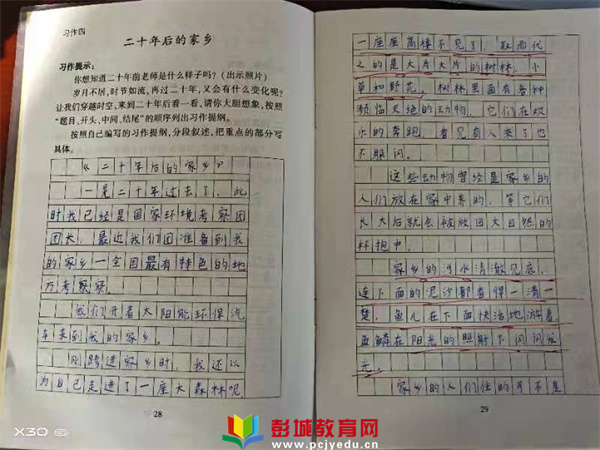 习作四
二十年后的家乡
习作提示：
你想知道二十年前老师是什么样子吗？（出示照片）
岁月不居，时节如流，再过二十年，又会有什么变化呢？
让我们穿越时空，来到二十年后看一看，请你大胆想象，按照
“题目、开头、中间、结尾”的顺序列出习作提纲。
按照自己编写的习作提纲，分段叙述，把重点的部分写
具体。
《二十年后的家乡》
一晃二十年过去了，此
时我已经是国家环境考察团
团长，最近我们团准备到我
的家乡一全国最有特色的地
方考察
我们开着太阳能环保汽
车来到我的家乡。
刚踏进家乡时，我还以
为自己走进了一座大森林呢
28
一座座高楼不见了，取而代
之的是大片大片的树林，小
草和野花。树林里面有各种
濒临灭绝的动物，它们在欢
乐的奔跑，看见有人来了也
不躲闪。
这些动物曾经是家乡的
人们放在家中养的，等它们
长大后就会被放回大自然的
怀抱中。
家乡的河水清澈见底，
连下面的泥沙都看得一清一
楚，鱼儿在下面快活地游着
鱼鳞在阳光的照射下闪闪发
光。
家乡的人们住的可不是
29
X30
彭城教育网
www.pcjyedu.com